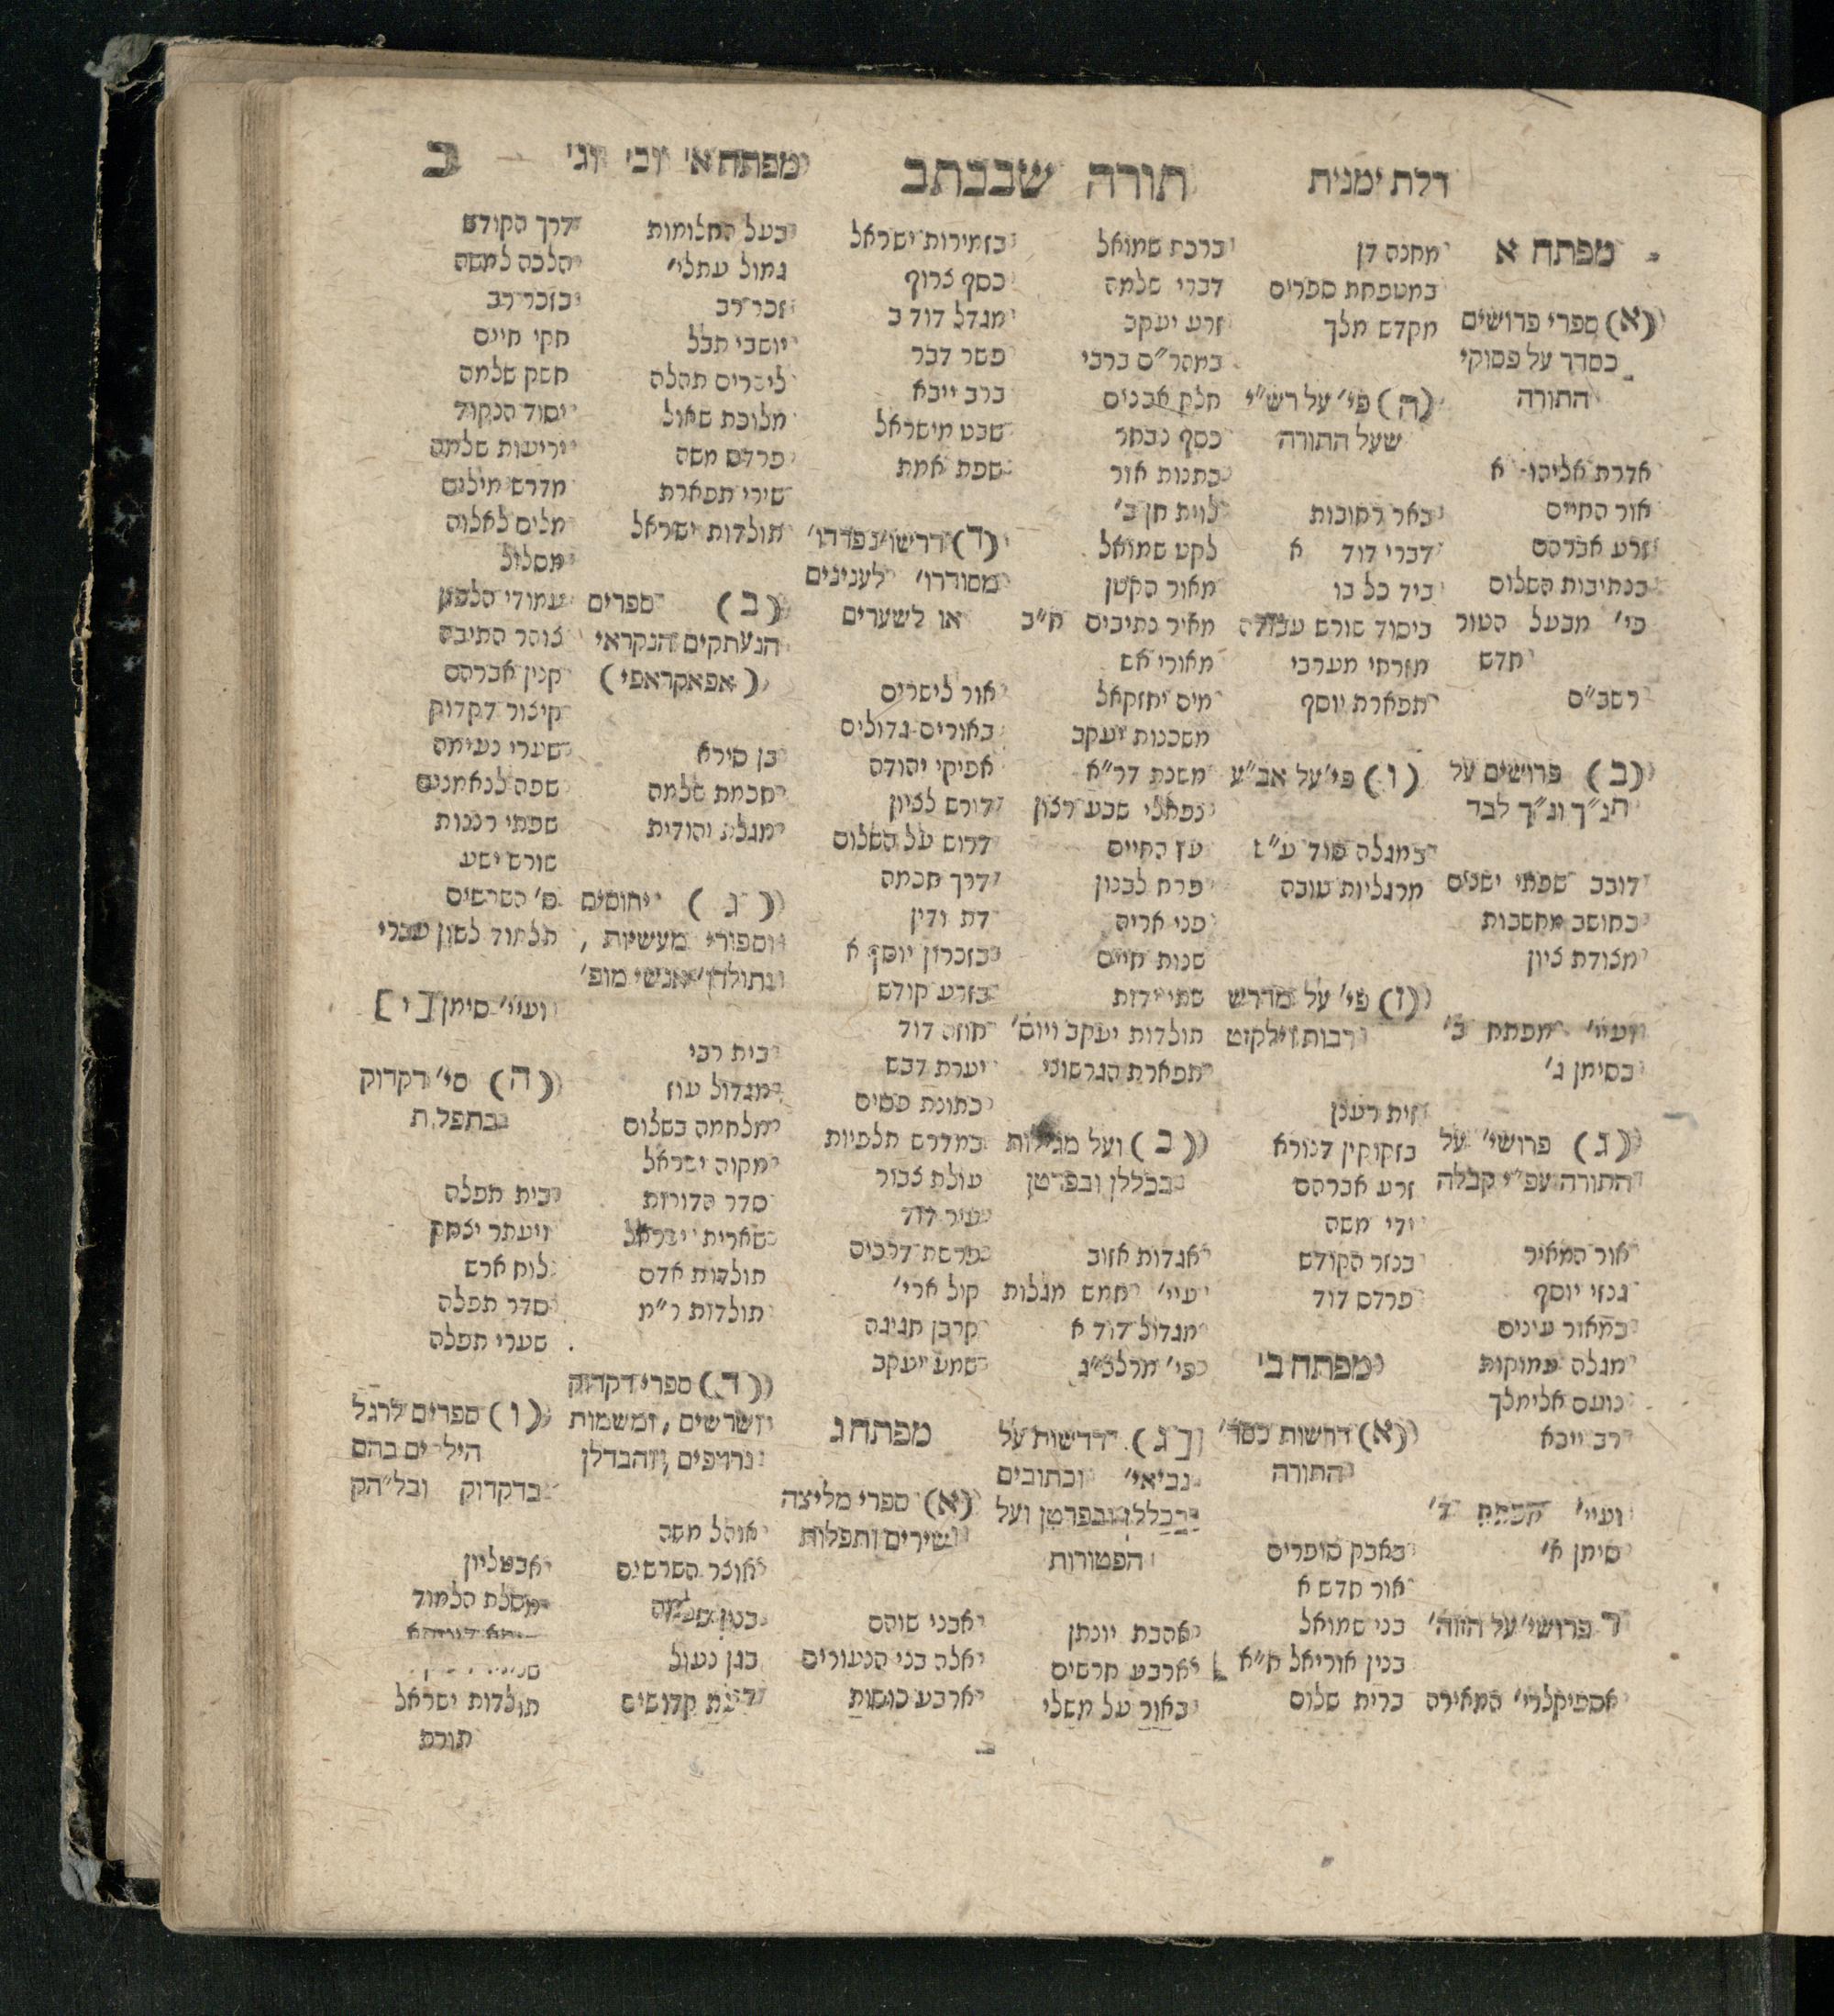 דלת ימנית
תורה שבכתב
מפתח א' וב' וג'
ב
מפתח א
(א) ספרי פרושים
כסדר על פסוקי
התורה
אדרת אליהו א
אור החיים
זרע אברהם
בנתיבות השלום
פי' מבעל הטור
חדש
רשב"ם
(ב) פרושים על
תנ"ך ונ"ך לבד
דובב שפתי ישנים
בחושב מחשבות
מצודת ציון
ועיי' מפתח ב'
בסימן ג'
(ג) פרושי' על
התורה עפ"י קבלה
אור המאיר
גנזי יוסף
במאור עינים
מגלה עמוקות
נועם אלימלך
רב ייבא
ועיי' מפתח ד'
סימן א'
ד פרושי' על הזוה'
אספיקלרי' המאירה
מחנה דן
במטפחת ספרים
מקדש מלך
(ה) פי' על רש"י
שעל התורה
באר רחובות
דברי דוד א
ביד כל בו
ביסוד שורש עבודה
מזרחי מערבי
תפארת יוסף
(ו) פי' על אב"ע
במגלה סוד ע"ש
מרגליות טובה
(ז) פי' על מדרש
רבות וילקוט
זית רענן
בזקוקין דנורא
זרע אברהם
ידי משה
בנזר הקודש
פרדס דוד
מפתח ב'
(א) דרשות כסד'
התורה
באבק סופרים
אור חדש א
בני שמואל
בנין אוריאל ח"א
ברית שלום
ברכת שמואל
דברי שלמה
זרע יעקב
במהר"ם ברבי
חלק אבנים
כסף נבחר
כתנות אור
לוית חן ב'
לקט שמואל
מאור הקטן
מאיר נתיבים ח"ב
מאורי אש
מים יחזקאל
משכנות יעקב
משנת דר"א
נפתלי שבע רצון
עץ החיים
פרח לבנון
פני אריה
שנות חיים
שתי ידות
תולדות יעקב ויוס'
תפארת הגרשוני
(ב) ועל מגילות
בכללן ובפרטן
אגדות אזוב
עיי' חמש מגלות
מגדול דוד א
פי' מרלב"ג
(ג) דרשות על
נביאי' וכתובים
בכללן ובפרטן ועל
הפטורות
אהבת יונתן
ארבע חרשים
באור על משלי
בזמירות ישראל
כסף צרוף
מגדל דוד ב
פשר דבר
ברב ייבא
שבט מישראל
שפת אמת
(ד) דרשו' נפרדו'
מסודרו' לענינים
או לשערים
אור לישרים
באורים גדולים
אפיקי יהודה
דורש לציון
דרוש על השלום
דרך חכמה
דת ודין
בזכרון יוסף א
בזרע קודש
חזה דוד
יערת דבש
כתונת פסים
במדרש תלפיות
עולת צבור
עיר דוד
פרשת דרכים
קול ארי'
קרבן חגיגה
שמע יעקב
מפתח ג
(א) ספרי מליצה
שירים ותפלות
אבני שוהם
אלה בני הנעורים
ארבע כוסות
בעל החלומות
גמול עתלי'
זכר רב
יושבי תבל
לישרים תהלה
מלוכת שאול
פרדס משה
שירי תפארת
תולדות ישראל
(ב) ספרים
הנעתקים הנקראי
(אפאקראפי)
בן סירא
חכמת שלמה
מגלת יהודית
(ג) יחוסים
וספורי מעשיות,
ותולדו' אנשי מופ'
בית רבי
מגדול עוז
מלחמה בשלום
מקוה ישראל
סדר הדורות
שארית ישראל
תולדות אדם
תולדות ר"מ
(ד) ספרי דקדוק
ושרשים, ומשמות
נרדפים, והבדלן
אוהל משה
אוצר השרשים
בגן נעול
קדושים
דרך הקודש
הלכה למשה
בזכר רב
חקי חיים
חשק שלמה
יסוד הנקוד
יריעות שלמה
מדרש מילים
מלים לאלוה
מסלול
עמודי הלשון
צוהר התיבה
קנין אברהם
קיצור דקדוק
שערי נעימה
שפה לנאמנים
שפתי רננות
שורש ישע
ס' השרשים
תלמוד לשון עברי
ועיי' סימן [ו]
(ה) סי' דקדוק
בתפלת
בית תפלה
ויעתר יצחק
לוח ארש
סדר תפלה
שערי תפלה
(ו) ספרים לרגל
הילדים בהם
בדקדוק ובל"הק
אבטליון
מסלת הלמוד
תולדות ישראל
תורת